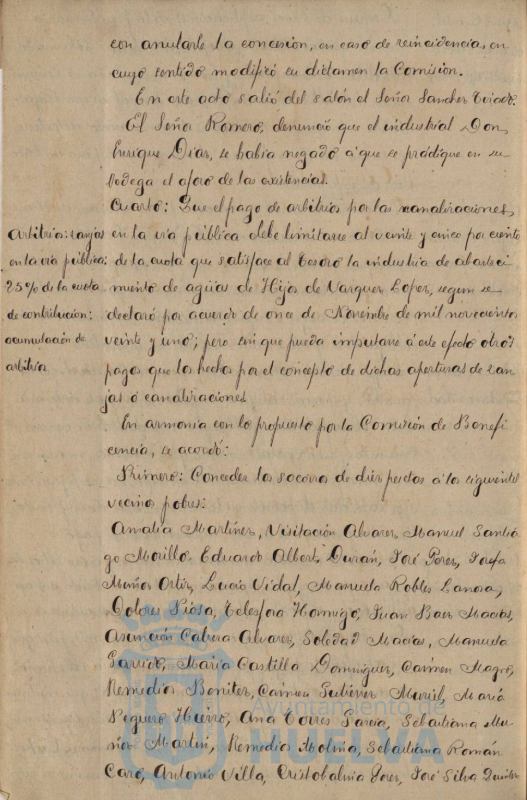 con anularle la concesion, en caso de reincidencias, en
cuyo sentido modificó su dictamen la Comisión.
En este acto salió del salón el Señor Sanchez
El Señor Romero, denunció que el industrial Don
Enrique Diaz, se habia negado a que se practique en su
bodega el aforo de las existencias.
Cuarto: Que el pago de arbitrios por las canalizaciones
en la via pública debe limitarse al veinte y cinco por ciento
de la cuota que satisface al Tesoro la industria de abasteci
miento de aguas de Hijos de Vazquez Lopez, segun se
declaró por acuerdo de once de Noviembre de mil novecientos
veinte y uno; pero sin que pueda imputarse á este efecto otros
pagos que los hechos por el concepto de dichas aperturas de zan
jas ó canalizaciones
Arbitrios: zanjas
en la via pública:
25% de la cuota
de contribucion:
acumulación de
arbitrios
En armonia con lo propuesto por la Comisión de Benefi
cencia, se acordó:
Primero: Conceder los socorros de diez pesetas á los siguientes
vecinos pobres:
Amalia Martinez, Visitación Alvarez, Manuel Santia
go Morillo, Eduardo Albert Durán, José Perez, Josefa
Muñoz Ortiz, Lucio Vidal, Manuela Robles
Dolores Telesfora Hormigo, Juan Baez Macias,
Asunción Cabeza Alvarez, Soledad Macias, Manuela
Garrido, Maria Castilla Dominguez, Carmen Magro,
Remedios Benitez, Carmen Gutierrez Maria
Noguero Ana Torres Garcia, Sebastiana Mu
ñoz Martin, Remedios Molina, Sebastiana Román
Caro, Antonio Villa, Cristobalina Perez, José Silva
Ayuntamiento de
HUELVA